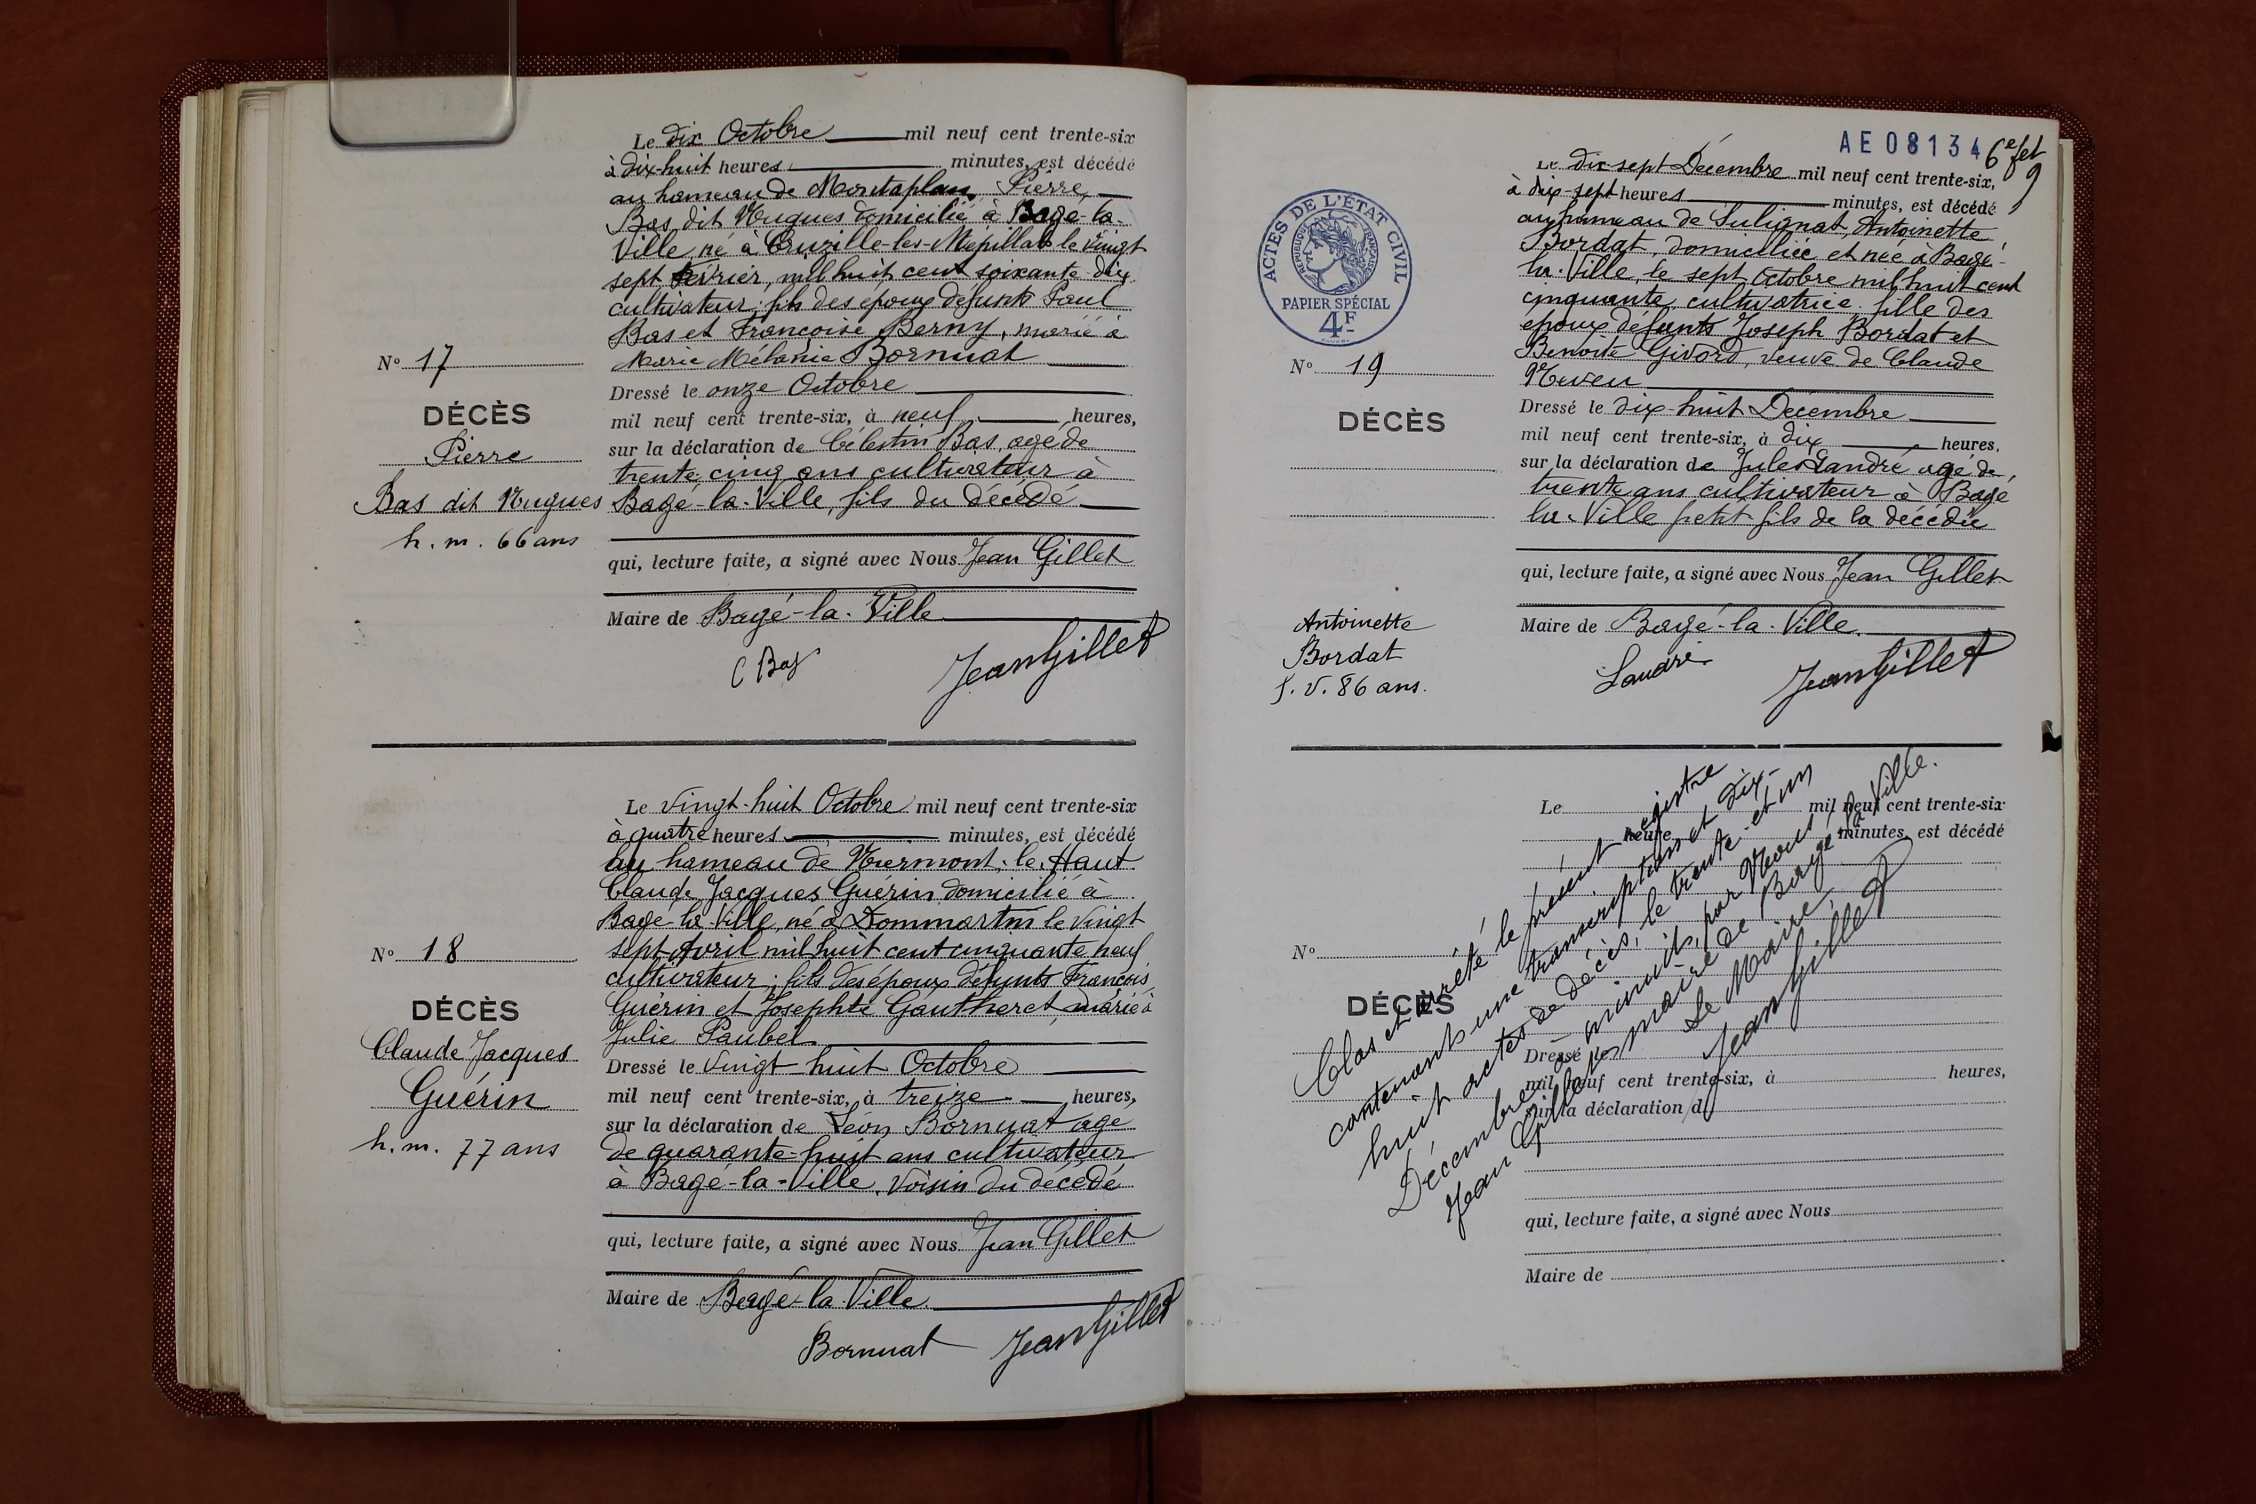 Le dix Octobre mil neuf cent trente-six
à dix-huit heures minutes, est décédé
au hameau de Montaplan, Pierre,
Bas dit Nugues domicilié à Bagé-la-
Ville, né à Cruzille-les-Mépillat le vingt
sept Février, mil huit cent soixante-dix
cultivateur, fils des époux défunts Paul
Bas et Françoise Berny, marié à
Marie Mélanie Bornuat
Dressé le onze Octobre
mil neuf cent trente-six, à neuf heures,
sur la déclaration de Célestin Bas, agé de
trente cinq ans cultivateur à
Bagé-la-Ville, fils du décédé
qui, lecture faite, a signé avec Nous Jean Gillet
Maire de Bagé-la-Ville
C Bas JeanGillet
N° 17
DÉCÈS
Pierre
Bas dit Nugues
h. m. 66 ans
Le vingt-huit Octobre mil neuf cent trente-six
à quatre heures minutes, est décédé
au hameau de Niermont-le-Haut
Claude Jacques Guérin domicilié à
Bagé-la-Ville, né à Dommartin le vingt
sept Avril mil huit cent cinquante neuf
cultivateur, fils des époux défunts François
Guérin et Josephte Gautheret, marié à
Julie Paubel
Dressé le vingt-huit Octobre
mil neuf cent trente-six, à treize heures,
sur la déclaration de Léon Bornuat agé
de quarante-huit ans cultivateur
à Bagé-la-Ville, voisin du décédé
qui, lecture faite, a signé avec Nous Jean Gillet
Maire de Bagé-la-Ville
Bornuat JeanGillet
N° 18
DÉCÈS
Claude Jacques
Guérin
h. m. 77 ans
AE 08134
6e fet
9
Le dix-sept Décembre mil neuf cent trente-six,
à dix-sept heures minutes, est décédé
au hameau de Sulignat, Antoinette
Bordat, domiciliée et née à Bagé-
la-Ville, le sept Octobre mil huit cent
cinquante, cultivatrice, fille des
époux défunts Joseph Bordat et
Benoite Givord, veuve de Claude
Neveu
Dressé le dix-huit Décembre
mil neuf cent trente-six, à dix heures,
sur la déclaration de Jules Landré agé de
trente ans cultivateur à Bagé
la-Ville petit fils de la décédée
qui, lecture faite, a signé avec Nous Jean Gillet
Maire de Bagé-la-Ville
Landré JeanGillet
ACTES DE L'ÉTAT CIVIL
RÉPUBLIQUE FRANÇAISE
PAPIER SPÉCIAL
4F
N° 19
DÉCÈS
Antoinette
Bordat
f. v. 86 ans.
Le mil neuf cent trente-six
heure minutes, est décédé
N°
DÉCÈS
Dressé le
mil neuf cent trente-six, à heures,
sur la déclaration d
qui, lecture faite, a signé avec Nous
Maire de
Clos et arrêté le présent registre
contenant une transcription et dix-
huit actes de décès, le trente-et-un
Décembre à minuit, par Nous
Jean Gillet maire de Bagé-la-Ville.
Le Maire,
JeanGillet